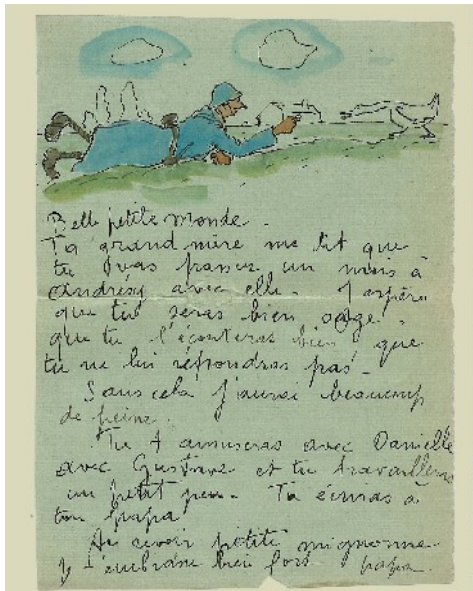 Belle petite monde.
Ta grand mère me dit que
tu vas passer un mois à
Andrésy avec elle. J'espère
que tu seras bien sage,
que tu l'écouteras bien que
tu ne lui répondras pas -
Sans cela j'aurai beaucoup
de peine.
Tu t'amuseras avec Danielle
avec Gustave et tu travailleras
un petit peu. Tu écriras à
ton papa
Au revoir petite mignonne
Je t'embrasse bien fort papa.